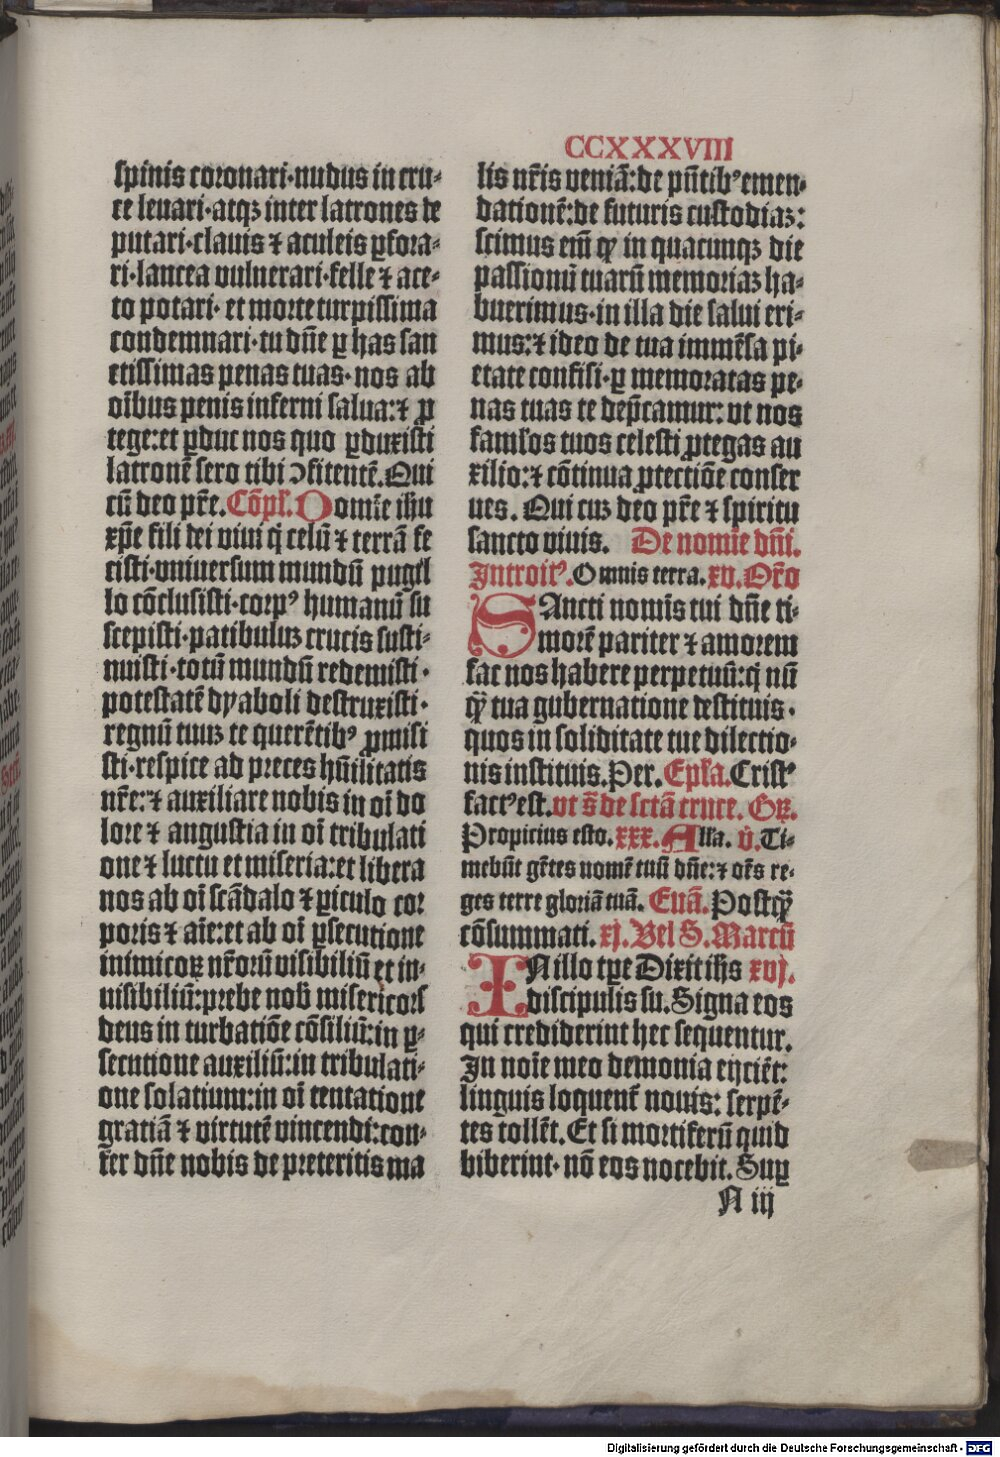 CCXXXVIII
spinis coronari·nudus in cru-
ce leuari·atqꝫ inter latrones de
putari·clauis ⁊ aculeis ꝑfora-
ri·lancea vulnerari·felle ⁊ ace-
to potari· et morte turpissima
condemnari·tu dñe ꝑ has san
ctissimas penas tuas·nos ab
oĩbus penis inferni salua:⁊ ꝓ
tege:et ꝑduc nos quo ꝑduxisti
latronẽ sero tibi ↄfitentẽ.Qui
cũ deo pr̃e. Cõpl'. Domĩe ihu
xp̃e fili dei viui q̃ celũ ⁊ terrã fe
cisti·vniuersum mundũ pugil
lo cõclusisti·corpꝰ humanũ su
scepisti·patibuluꝫ crucis susti-
nuisti·totũ mundũ redemisti·
potestatẽ dyaboli destruxisti·
regnũ tuuꝫ te querẽtibꝰ ꝓmisi
sti·respice ad preces hũilitatis
nr̃e:⁊ auxiliare nobis in oĩ do
lore ⁊ angustia in oĩ tribulati
one ⁊ luctu et miseria:et libera
nos ab oĩ scãdalo ⁊ ꝑiculo cor
poris ⁊ aĩe:et ab oĩ ꝑsecutione
inimicoꝝ nr̃orũ visibiliũ et in-
uisibiliũ:prebe nob̃ misericors
deus in turbatiõe cõsiliũ:in ꝑ-
secutione auxiliũ:in tribulati-
one solatium:in oĩ tentatione
gratiã ⁊ virtutẽ vincendi:con-
fer dñe nobis de preteritis ma
lis nr̃is veniã:de pñtibꝰ emen-
dationẽ:de futuris custodiaꝫ:
scimus em̃ ꝙ in quacunqꝫ die
passionũ tuarũ memoriaꝫ ha-
buerimus·in illa die salui eri-
mus:⁊ ideo de tua immẽsa pi-
etate confisi·ꝑ memoratas pe-
nas tuas te dep̃camur: vt nos
famĺos tuos celesti ꝓtegas au
xilio:⁊ cõtinua ꝓtectiõe conser
ues. Qui cuꝫ deo pr̃e ⁊ spiritu
sancto viuis. De nomĩe dñi.
Introitꝰ. Omnis terra. xv. Or̃o
SAncti nomĩs tui dñe ti-
morẽ pariter ⁊ amorem
fac nos habere perpetuũ:q̃ nũ
ꝙ̃ tua gubernatione destituis·
quos in soliditate tue dilectio-
nis instituis.Per. Epl̃a. Cristꝰ
factꝰ est. vt s̃ de sctã cruce. Gꝝ.
Propicius esto. xxx. Alla. v̓. Ti-
mebũt gẽtes nomẽ tuũ dñe:⁊ oẽs re-
ges terre gloriã tuã. Euã. Postꝙ̃
cõsummati. xj. Vel S. Marcũ
IN illo tp̃e Dixit ih̃s xvj.
discipulis su. Signa eos
qui crediderint hec sequentur.
In noĩe meo demonia eijciẽt:
linguis loquent̃ nouis: serpẽ-
tes tollẽt. Et si mortiferũ quid
biberint·nõ eos nocebit. Suꝑ
N iij
Digitalisierung gefördert durch die Deutsche Forschungsgemeinschaft - DFG